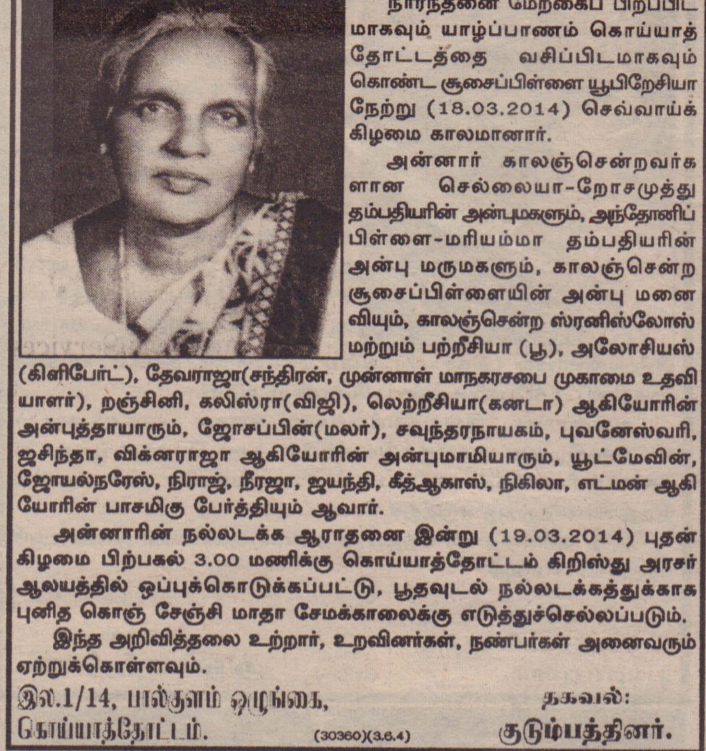 நாரந்தனை மேற்கைப் பிறப்பிட
மாகவும் யாழ்ப்பாணம் கொய்யாத்
தோட்டத்தை வசிப்பிடமாகவும்
கொண்ட சூசைப்பிள்ளை யூபிறேசியா
நேற்று (18.03.2014) செவ்வாய்க்
கிழமை காலமானார்.
அன்னார் காலஞ்சென்றவர்க
ளான செல்லையா-றோசமுத்து
தம்பதியரின் அன்புமகளும், அந்தோனிப்
பிள்ளை-மரியம்மா தம்பதியரின்
அன்பு மருமகளும், காலஞ்சென்ற
சூசைப்பிள்ளையின் அன்பு மனை
வியும், காலஞ்சென்ற ஸ்ரனிஸ்லோஸ்
மற்றும் பற்றீசியா (பூ), அலோசியஸ்
(கிளிபேர்ட்), தேவராஜா(சந்திரன், முன்னாள் மாநகரசபை முகாமை உதவி
யாளர்), றஞ்சினி, கலிஸ்ரா(விஜி), லெற்றீசியா(கனடா) ஆகியோரின்
அன்புத்தாயாரும், ஜோசப்பின்(மலர்), சவுந்தரநாயகம், புவனேஸ்வரி,
ஜசிந்தா, விக்னராஜா ஆகியோரின் அன்புமாமியாரும், யூட்மேவின்,
ஜோயல்நரேஸ், நிராஜ், நீரஜா, ஜயந்தி, கீத்ஆகாஸ், நிகிலா, எட்மன் ஆகி
யோரின் பாசமிகு பேர்த்தியும் ஆவார்.
அன்னாரின் நல்லடக்க ஆராதனை இன்று (19.03.2014) புதன்
கிழமை பிற்பகல் 3.00 மணிக்கு கொய்யாத்தோட்டம் கிறிஸ்து அரசர்
ஆலயத்தில் ஒப்புக்கொடுக்கப்பட்டு, பூதவுடல் நல்லடக்கத்துக்காக
புனித கொஞ் சேஞ்சி மாதா சேமக்காலைக்கு எடுத்துச்செல்லப்படும்.
இந்த அறிவித்தலை உற்றார், உறவினர்கள், நண்பர்கள் அனைவரும்
ஏற்றுக்கொள்ளவும்.
இல.1/14, பால்குளம் ஒழுங்கை,
கொய்யாத்தோட்டம்.
(30360)(3.6.4)
தகவல்:
குடும்பத்தினர்.